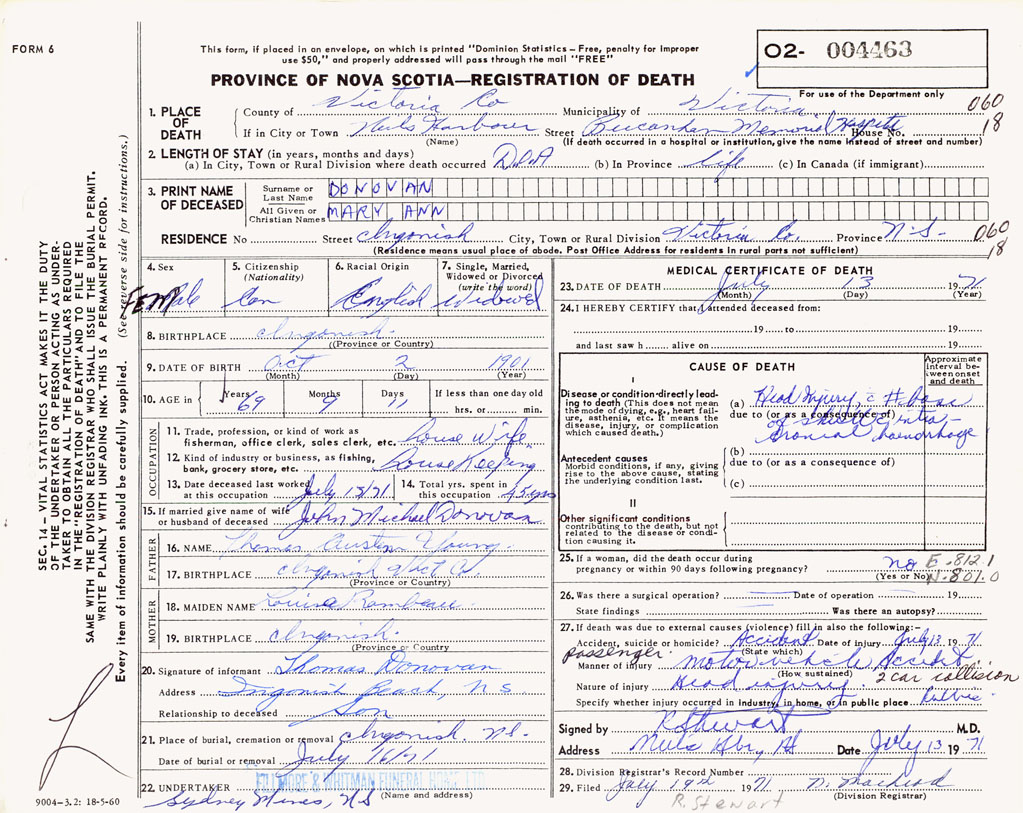 FORM 6
This form, if placed in an envelope, on which is printed "Dominion Statistics – Free, penalty for improper
use $50," and properly addressed will pass through the mail "FREE"
02- 004463
For use of the Department only
PROVINCE OF NOVA SCOTIA—REGISTRATION OF DEATH
1. PLACE OF DEATH
County of Victoria Co Municipality of Victoria 060
If in City or Town Neils Harbour Street Bucanhan Memorial Hospital House No. 18
(Name) (If death occurred in a hospital or institution, give the name instead of street and number)
2. LENGTH OF STAY (in years, months and days)
(a) In City, Town or Rural Division where death occurred DOA (b) In Province life (c) In Canada (if immigrant)
3. PRINT NAME OF DECEASED
Surname or Last Name DONOVAN
All Given or Christian Names MARY ANN
RESIDENCE No Street Ingonish City, Town or Rural Division Victoria Co. Province N-S- 060
18
(Residence means usual place of abode. Post Office Address for residents in rural parts not sufficient)
4. Sex Female
5. Citizenship (Nationality) Can
6. Racial Origin English
7. Single, Married, Widowed or Divorced (write the word) Widowed
8. BIRTHPLACE Ingonish.
(Province or Country)
9. DATE OF BIRTH Oct 2 1901
(Month) (Day) (Year)
10. AGE in Years 69 Months 9 Days 11 If less than one day old
hrs. or min.
OCCUPATION
11. Trade, profession, or kind of work as
fisherman, office clerk, sales clerk, etc. House Wife
12. Kind of industry or business, as fishing,
bank, grocery store, etc. House Keeping
13. Date deceased last worked at this occupation July 13/71
14. Total yrs. spent in this occupation 45 yrs
15. If married give name of wife
or husband of deceased John Michael Donovan
FATHER
16. NAME Thomas Austen Young
17. BIRTHPLACE Ingonish
(Province or Country)
MOTHER
18. MAIDEN NAME Louise
19. BIRTHPLACE Ingonish.
(Province or Country)
20. Signature of informant Thomas Donovan
Address Ingonish Beach, N S
Relationship to deceased Son
21. Place of burial, cremation or removal Ingonish. NS.
Date of burial or removal July 16/71
22. UNDERTAKER FILLMORE & WHITMAN FUNERAL HOME LTD
(Name and address)
Sydney Mines, NS
9004-3.2: 18-5-60
MEDICAL CERTIFICATE OF DEATH
23. DATE OF DEATH July 13 1971
(Month) (Day) (Year)
24. I HEREBY CERTIFY that I attended deceased from:
19 to 19
and last saw h alive on 19
CAUSE OF DEATH
Approximate interval between onset and death
I
Disease or condition directly leading to death (This does not mean the mode of dying, e.g., heart failure, asthenia, etc. It means the disease, injury, or complication which caused death.)
(a) Head Injury, c # base
due to (or as a consequence of)
of skull
cranial haemorrhage
Antecedent causes
Morbid conditions, if any, giving rise to the above cause, stating the underlying condition last.
(b)
due to (or as a consequence of)
(c)
II
Other significant conditions
contributing to the death, but not related to the disease or condition causing it.
25. If a woman, did the death occur during
pregnancy or within 90 days following pregnancy? no
(Yes or No)
E-812.1
N-801.0
26. Was there a surgical operation? Date of operation 19
State findings Was there an autopsy?
27. If death was due to external causes (violence) fill in also the following:-
Accident, suicide or homicide? Accident Date of injury July 13 1971
(State which)
passenger
Manner of injury Motor vehicle Accident
(How sustained) 2 car collision
Nature of injury Head injury
Specify whether injury occurred in industry, in home, or in public place Public
Signed by R Stewart M.D.
Address Neils Hbr, NS Date July 13 1971
28. Division Registrar's Record Number
29. Filed July 19th 1971 N. MacLeod
(Division Registrar)
R. Stewart
SEC. 14 – VITAL STATISTICS ACT MAKES IT THE DUTY
OF THE UNDERTAKER OR PERSON ACTING AS UNDER-
TAKER TO OBTAIN ALL THE PARTICULARS REQUIRED
IN THE "REGISTRATION OF DEATH" AND TO FILE THE
SAME WITH THE DIVISION REGISTRAR WHO SHALL ISSUE THE BURIAL PERMIT.
WRITE PLAINLY WITH UNFADING INK. THIS IS A PERMANENT RECORD.
Every item of information should be carefully supplied. (See reverse side for instructions.)